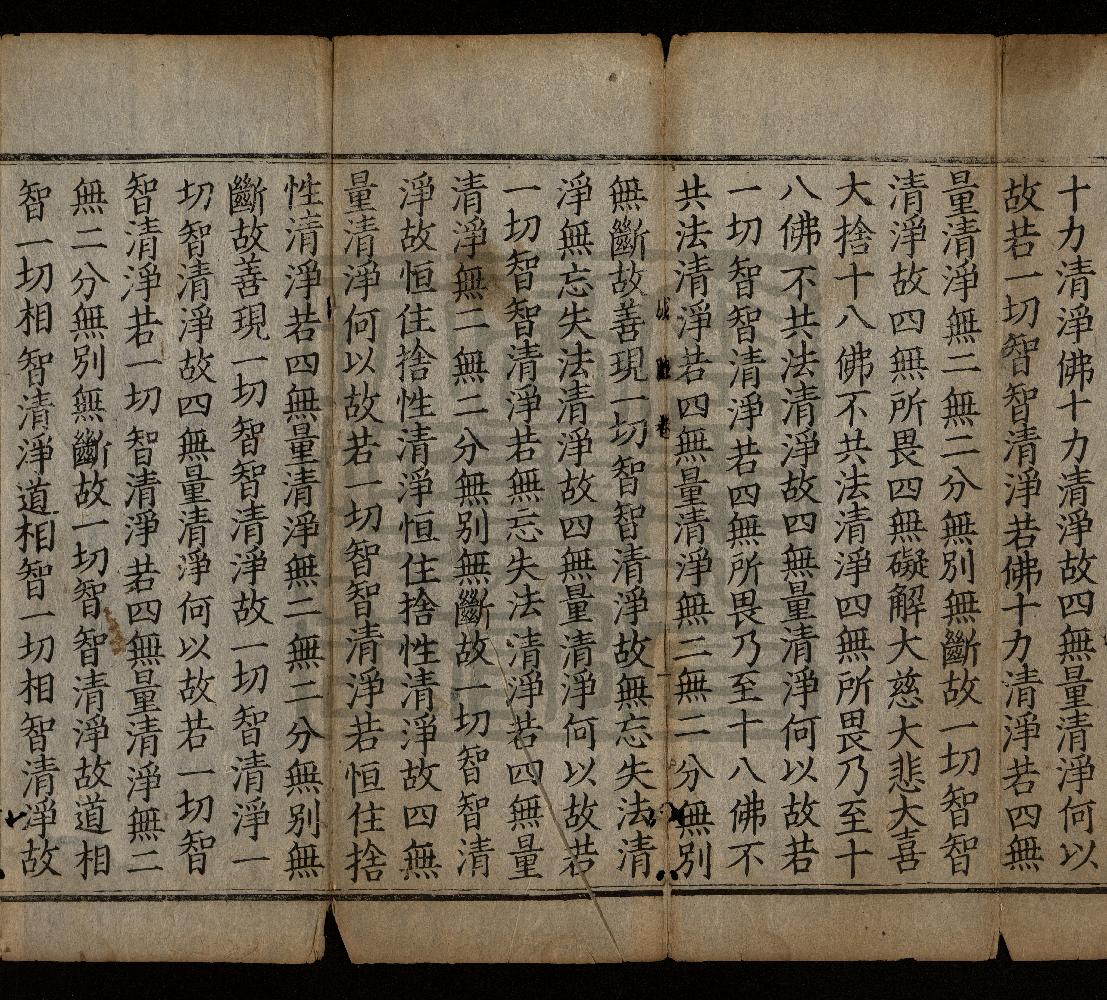 十力清淨佛十力清淨故四無量清淨何以
故若一切智智清淨若佛十力清淨若四無
量清淨無二無二分無別無斷故一切智智
清淨故四無所畏四無礙解大慈大悲大喜
大捨十八佛不共法清淨四無所畏乃至十
八佛不共法清淨故四無量清淨何以故若
一切智智清淨若四無所畏乃至十八佛不
共法清淨若四無量清淨無二無二分無別
無斷故善現一切智智清淨故無忘失法清
淨無忘失法清淨故四無量清淨何以故若
一切智智清淨若無忘失法清淨若四無量
清淨無二無二分無別無斷故一切智智清
淨故恒住捨性清淨恒住捨性清淨故四無
量清淨何以故若一切智智清淨若恒住捨
性清淨若四無量清淨無二無二分無別無
斷故善現一切智智清淨故一切智清淨一
切智清淨故四無量清淨何以故若一切智
智清淨若一切智清淨若四無量清淨無二
無二分無別無斷故一切智智清淨故道相
智一切相智清淨道相智一切相智清淨故